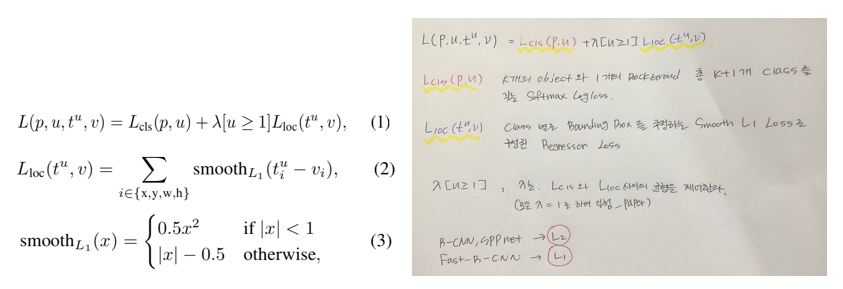 L(p, u, tᵘ, v) = L_cls(p, u) + λ[u ≥ 1]L_loc(tᵘ, v), (1)
L_loc(tᵘ, v) = ∑_{i∈{x,y,w,h}} smooth_{L₁}(tᵢᵘ − vᵢ), (2)
smooth_{L₁}(x) = { 0.5x² if |x| < 1
|x| − 0.5 otherwise, (3)
L(P,u,tᵘ,v) = Lcls(P,u) + λ[u≥1] Lloc(tᵘ,v)
Lcls(P,u) K개의 object와 1개의 Background 총 K+1개 Class를
갖는 Softmax Logloss.
Lloc(tᵘ,v) Class 별로 Bounding Box를 Smooth L1 Loss로
구성된 Regressor Loss
λ[u≥1] , λ는 Lcls와 Lloc 사이의 균형을 제어한다.
(모든 λ=1로 하여 실험_paper)
R-CNN, SPPnet → L2
Fast-R-CNN → L1